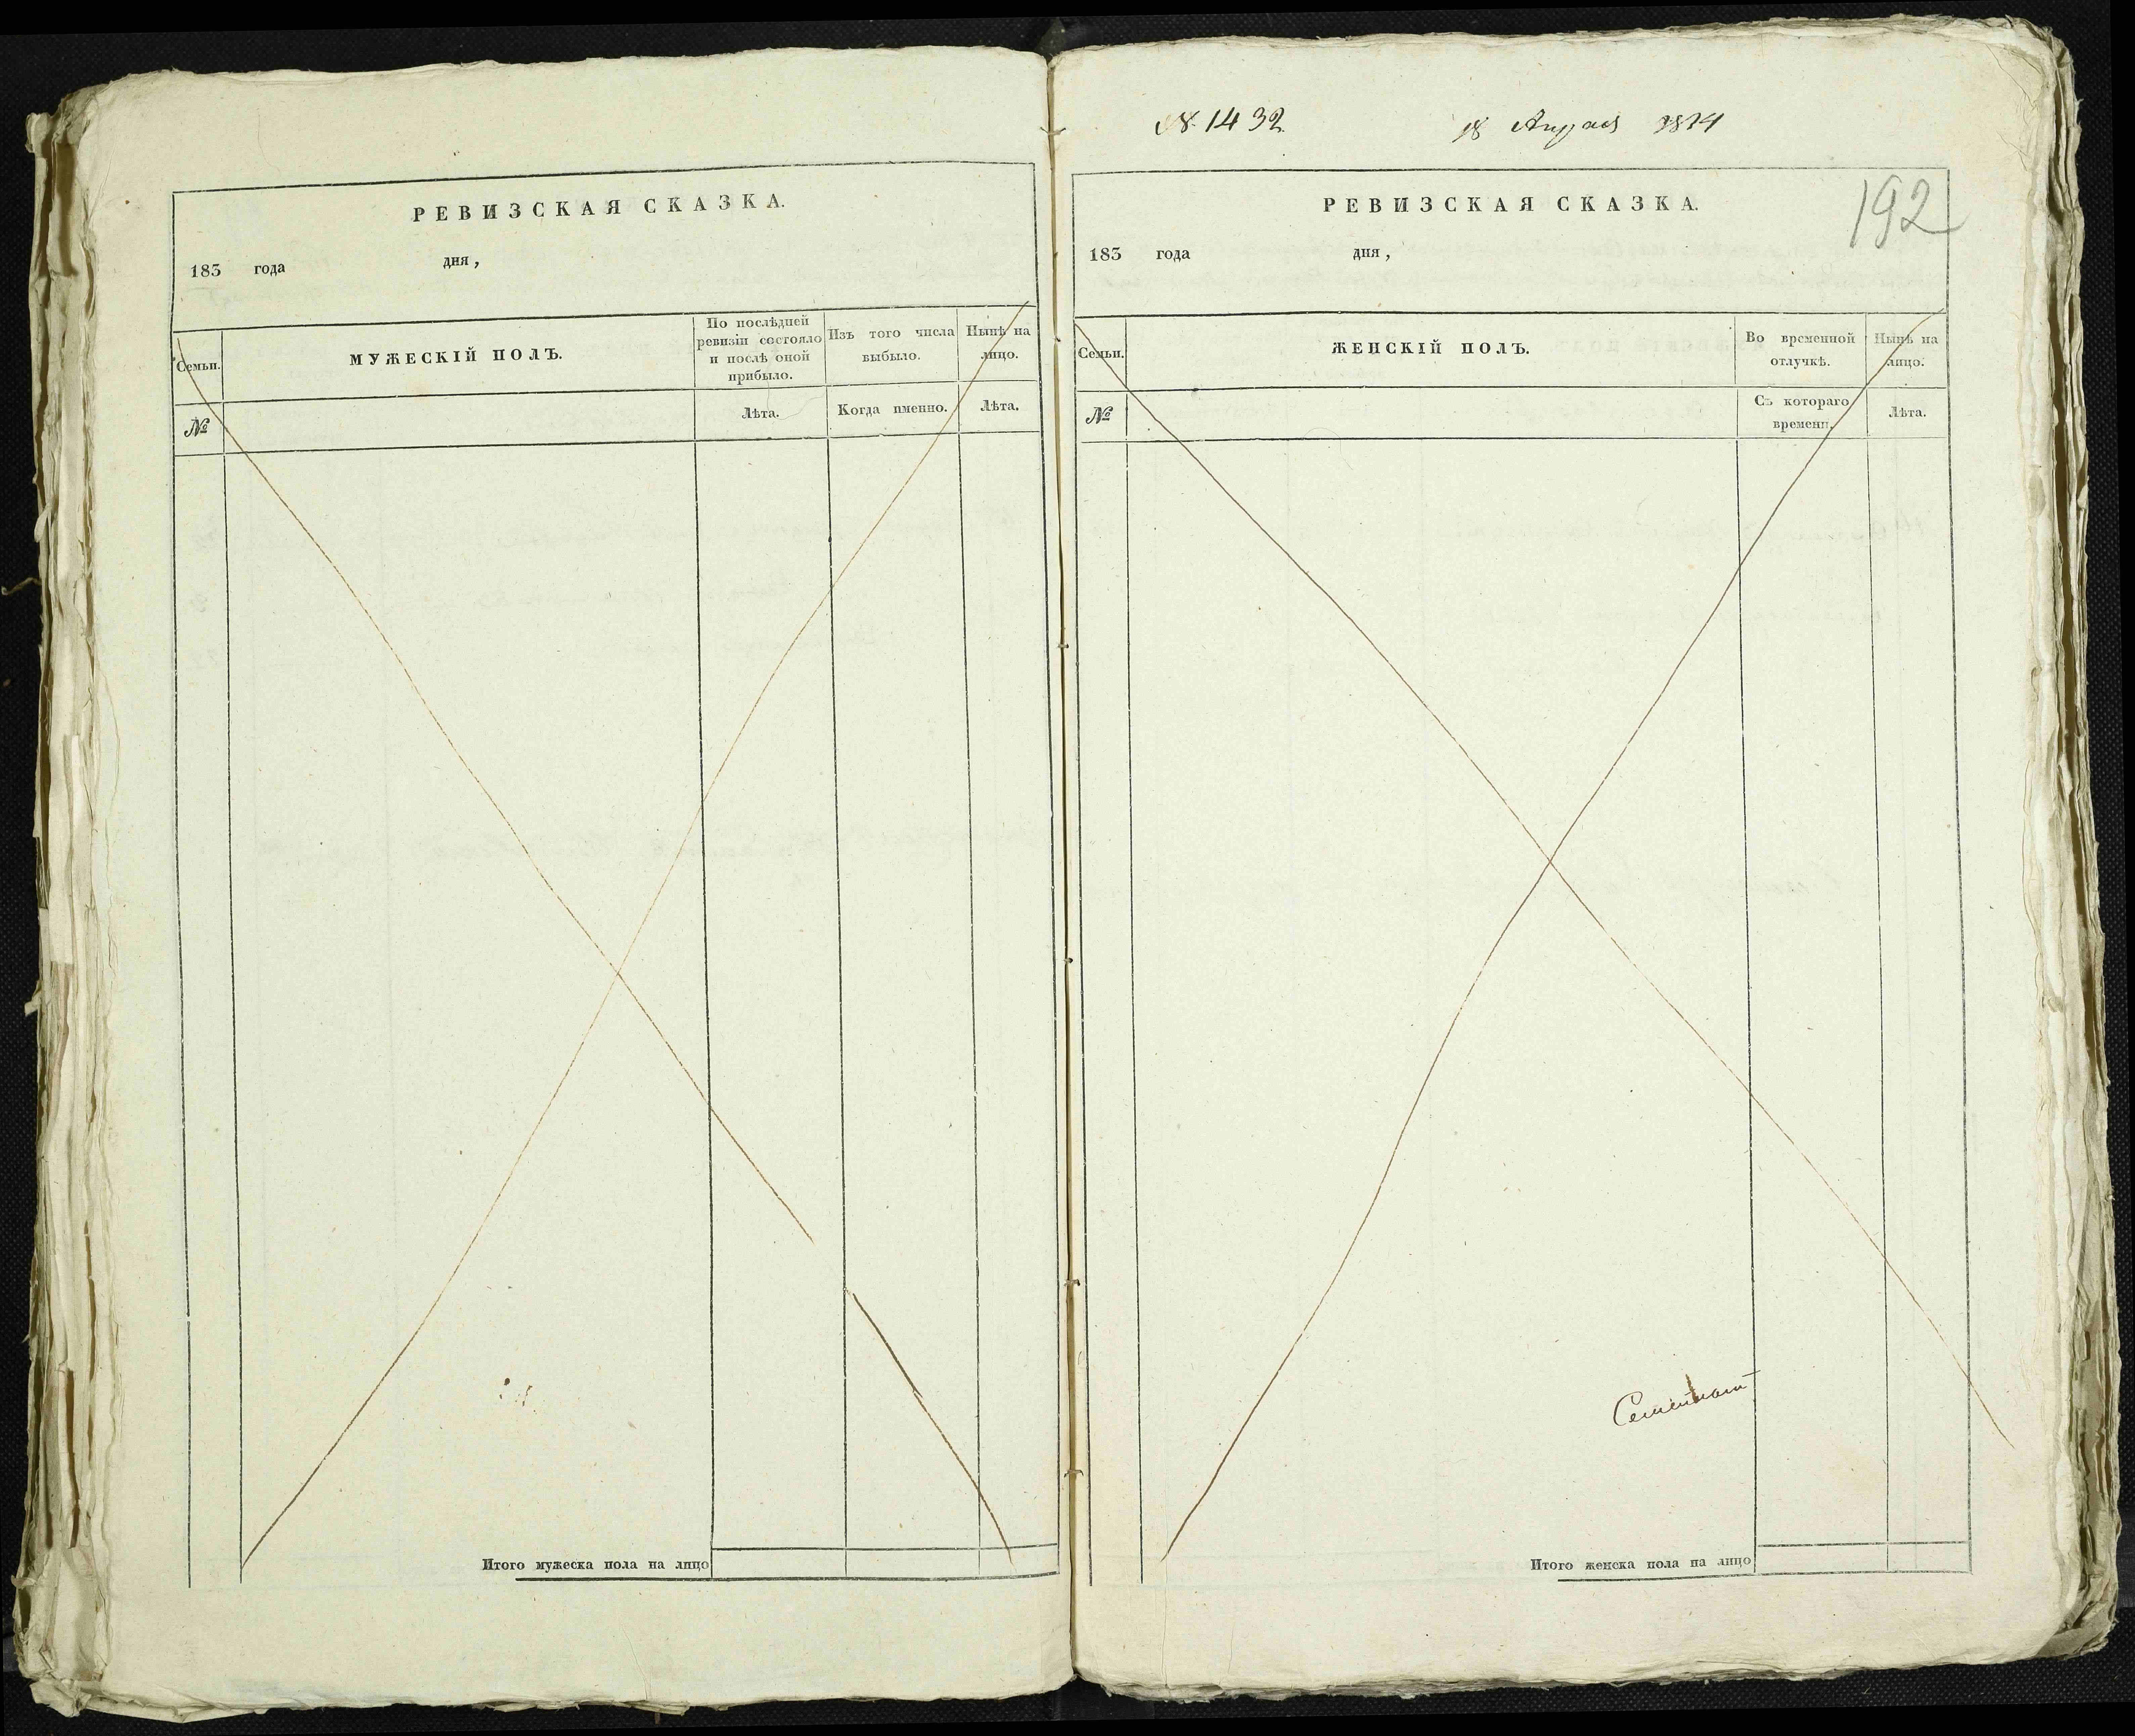 РЕВИЗСКАЯ СКАЗКА.
183 года дня,
Семьи.
МУЖЕСКІЙ ПОЛЪ.
По послѣдней ревизіи состояло и послѣ оной прибыло.
Изъ того числа выбыло.
Нынѣ на лицо.
№
Лѣта.
Когда именно.
Лѣта.
Итого мужеска пола на лицо
№ 1432
18 Апраля
192
РЕВИЗСКАЯ СКАЗКА.
183 года дня,
Семьи.
ЖЕНСКІЙ ПОЛЪ.
Во временной отлучкѣ.
Нынѣ на лицо.
№
Съ котораго времени.
Лѣта.
Итого женска пола на лицо